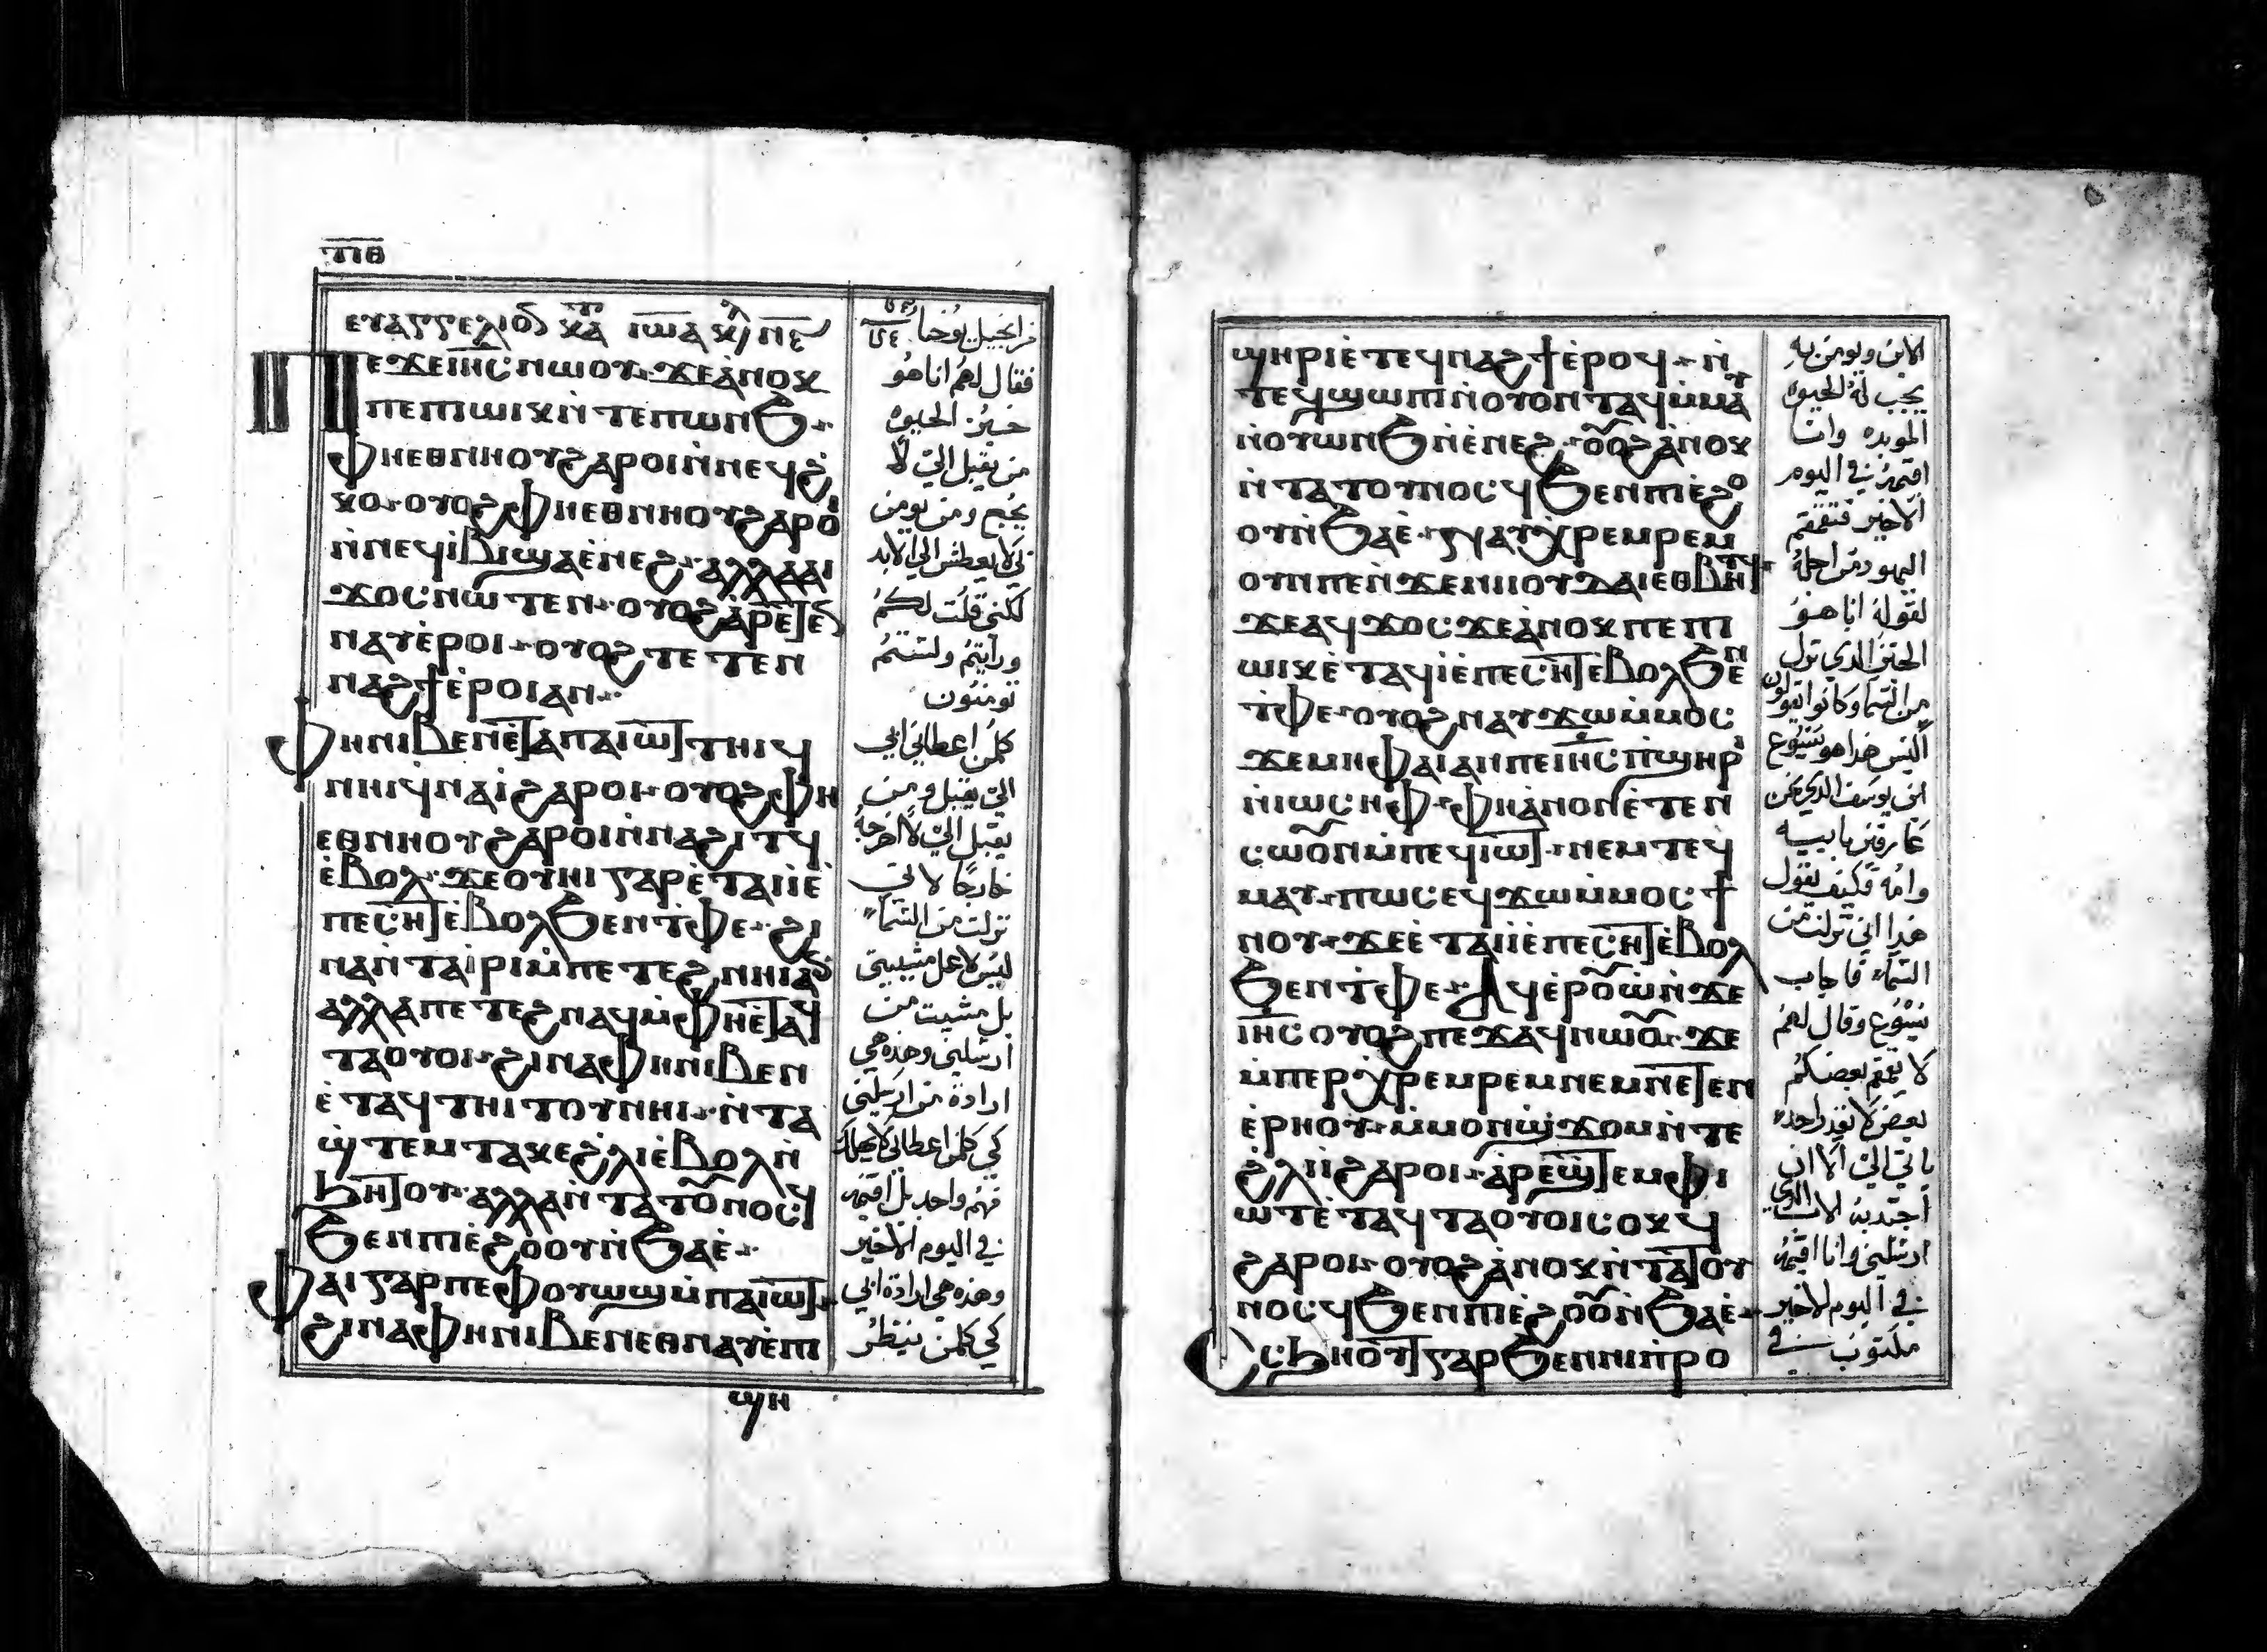 ⲧⲓⲑ
ⲉⲩⲁⲅⲅⲉⲗⲓⲟ ⲕⲁ ⲓⲱⲁ
ⲡⲉϫⲉⲓⲏⲥⲛⲱⲟⲩ ϫⲉⲁⲛⲟⲕ
ⲡⲉⲡⲱⲓⲕⲛ̀ⲧⲉⲡⲱⲛϧ
ⲫⲏⲉⲑⲛⲏⲟⲩϩⲁⲣⲟⲓⲛ̀ⲛⲉϥϩ
ⲕⲟ ⲟⲩⲟϩⲫⲏⲉⲑⲛⲏⲟⲩϩⲁⲣⲟ
ⲛ̀ⲛⲉϥⲓⲃⲓϣⲁⲉ̀ⲛⲉϩ ⲁⲗⲗⲁⲁⲓ
ϫⲟⲥⲛⲱⲧⲉⲛ ⲟⲩⲟϩⲁⲣⲉⲧⲉ
ⲛⲁⲩⲉ̀ⲣⲟⲓ ⲟⲩⲟϩⲧⲉⲧⲉⲛ
ⲛⲁϩϯⲉ̀ⲣⲟⲓⲁⲛ
ⲫⲏⲛⲓⲃⲉⲛⲉ̀ⲧⲁⲡⲁⲓⲱⲧⲧⲏⲓϥ
ⲛⲏⲓϥⲛⲁⲓ̀ϩⲁⲣⲟⲓ ⲟⲩⲟϩⲫⲏ
ⲉⲑⲛⲏⲟⲩϩⲁⲣⲟⲓⲛ̀ⲛⲁϩⲓⲧϥ
ⲉ̀ⲃⲟⲗ ϫⲉⲟⲩⲏⲓⲅⲁⲣⲉ̀ⲧⲁⲓⲓ̀ⲉ̀
ⲡⲉⲥⲏⲧⲉ̀ⲃⲟⲗϧⲉⲛⲧ̀ⲫⲉ ϩⲓ
ⲛⲁⲛ̀ⲧⲁⲓ̀ⲣⲓⲙ̀ⲡⲉⲧⲉϩⲛⲏⲓⲁ
ⲁⲗⲗⲁⲡⲉⲧⲉϩⲛⲁϥⲙ̀ⲫⲏⲉⲧⲁϥ
ⲧⲁⲟⲩⲟⲓ ϩⲓⲛⲁⲫⲏⲛⲓⲃⲉⲛ
ⲉ̀ⲧⲁϥⲧⲏⲓⲧⲟⲩⲛⲏⲓ ⲛ̀ⲧⲁ
ϣ̀ⲧⲉⲙⲧⲁⲕⲉϩ̀ⲗⲓⲉ̀ⲃⲟⲗⲛ̀
ϧⲏⲧⲟⲩ ⲁⲗⲗⲁⲛ̀ⲧⲁⲧⲟⲛⲟⲥϥ
ϧⲉⲛⲡⲓⲉ̀ϩⲟⲟⲩⲛ̀ϧⲁⲉ̀
ⲫⲁⲓⲅⲁⲣⲡⲉⲫⲟⲩⲱϣⲙ̀ⲡⲁⲓⲱⲧ
ϩⲓⲛⲁⲫⲏⲛⲓⲃⲉⲛⲉⲑⲛⲁⲩⲉ̀ⲡ
ϣⲏ
من انجيل يوحنا
فقال لهم انا هو
خبز الحيوه
من يقبل الي لا
يجوع ومن يومن
بي لا يعطش الي الابد
لكني قلت لكم
ورايتم ولستم
تومنون
كلمن اعطاني ابي
الي يقبل ومن
يقبل الي لا اخرجه
خارجًا لاني
نزلت من السما
ليس لاعمل مشيتي
بل مشيت من
ارسلني وهذه هي
ارادة من ارسلني
كي كلمن اعطاني لا يهلك
منهم واحد بل اقيمه
في اليوم الاخير
وهذه هي ارادة ابي
كي كلمن ينظر
ϣⲏⲣⲓⲉ̀ⲧⲉϥⲛⲁϩϯⲉ̀ⲣⲟϥ ⲛ̀
ⲧⲉϥϣⲱⲡⲓⲛ̀ⲟⲩⲟⲛⲧⲁϥⲙ̀ⲙⲁⲩ
ⲛ̀ⲟⲩⲱⲛϧⲛ̀ⲉ̀ⲛⲉϩ ⲟⲟϩⲁ̀ⲛⲟⲕ
ⲛ̀ⲧⲁⲧⲟⲩⲛⲟⲥϥϧⲉⲛⲡⲓⲉ̀ϩⲟ
ⲟⲩⲛ̀ϧⲁⲉ̀ ⲛⲁⲩⲭⲣⲉⲙⲣⲉⲙ
ⲟⲩⲛⲡⲉⲛ̀ϫⲉⲛⲓⲟⲩⲇⲁⲓⲉⲑⲃⲏⲧϥ
ϫⲉⲁϥϫⲟⲥ ϫⲉⲁ̀ⲛⲟⲕⲡⲉⲡ
ⲱⲓⲕⲉ̀ⲧⲁϥⲓ̀ⲉ̀ⲡⲉⲥⲏⲧⲉ̀ⲃⲟⲗϧⲉⲛ
ⲧ̀ⲫⲉ ⲟⲩⲟϩⲛⲁⲩϫⲱⲙ̀ⲙⲟⲥ
ϫⲉⲙⲏⲫⲁⲓⲁⲛⲡⲉⲓⲏⲥⲡ̀ϣⲏⲣⲓ
ⲛ̀ⲓⲱⲥⲏⲫ ⲫⲏⲁ̀ⲛⲟⲛⲉ̀ⲧⲉⲛ
ⲥⲱⲟⲛⲙ̀ⲡⲉϥⲓⲱⲧ ⲛⲉⲙⲧⲉϥ
ⲙⲁⲩ ⲡⲱⲥⲉϥϫⲱⲙ̀ⲙⲟⲥϯ
ⲛⲟⲩ ϫⲉⲉ̀ⲧⲁⲓⲓ̀ⲉ̀ⲡⲉⲥⲏⲧⲉ̀ⲃⲟⲗ
ϧⲉⲛⲧ̀ⲫⲉ ⲁϥⲉ̀ⲣⲟⲱ̀ⲛ̀ϫⲉ
ⲓⲏⲥⲟⲩⲟϩⲡⲉϫⲁϥⲛⲱⲟ ϫⲉ
ⲙ̀ⲡⲉⲣⲭⲣⲉⲙⲣⲉⲙⲛⲉⲙⲛⲉⲧⲉⲛ
ⲉ̀ⲣⲏⲟⲩ ⲙ̀ⲙⲟⲛϣϫⲟⲙⲛ̀ⲧⲉ
ϩ̀ⲗⲓⲓ̀ϩⲁⲣⲟⲓ ⲁ̀ⲣⲉϣⲧⲉⲙⲫⲓ
ⲱⲧⲉ̀ⲧⲁϥⲧⲁⲟⲩⲟⲓⲥⲟⲕϥ
ϩⲁⲣⲟⲓ ⲟⲩⲟϩⲁ̀ⲛⲟⲕⲛ̀ⲧⲁⲧⲟⲩ
ⲛⲟⲥϥϧⲉⲛⲡⲓⲉ̀ϩⲟⲟⲛ̀ϧⲁⲉ̀
ⲥⲥϧⲏⲟⲩⲧⲅⲁⲣϧⲉⲛⲛⲓⲡ̀ⲣⲟ
الابن ويومن به
يجب له الحيوه
الموبده وانا
اقيمه في اليوم
الاخير فتقمقم
اليهود من اجله
لقوله انا هو
الخبز الذي نزل
من السما وكانوا يقولون
اليس هذا هو يسوع
ابن يوسف الذي نحن
عارفين بابيه
وامه فكيف يقول
هذا اني نزلت من
السماء فاجاب
يسوع وقال لهم
لا يقمقم بعضكم
بعض لا يقدر احد
ياتي الي الا ان
اجتدبه الاب الذي
ارسلني وانا اقيمه
في اليوم الاخير
مكتوب في